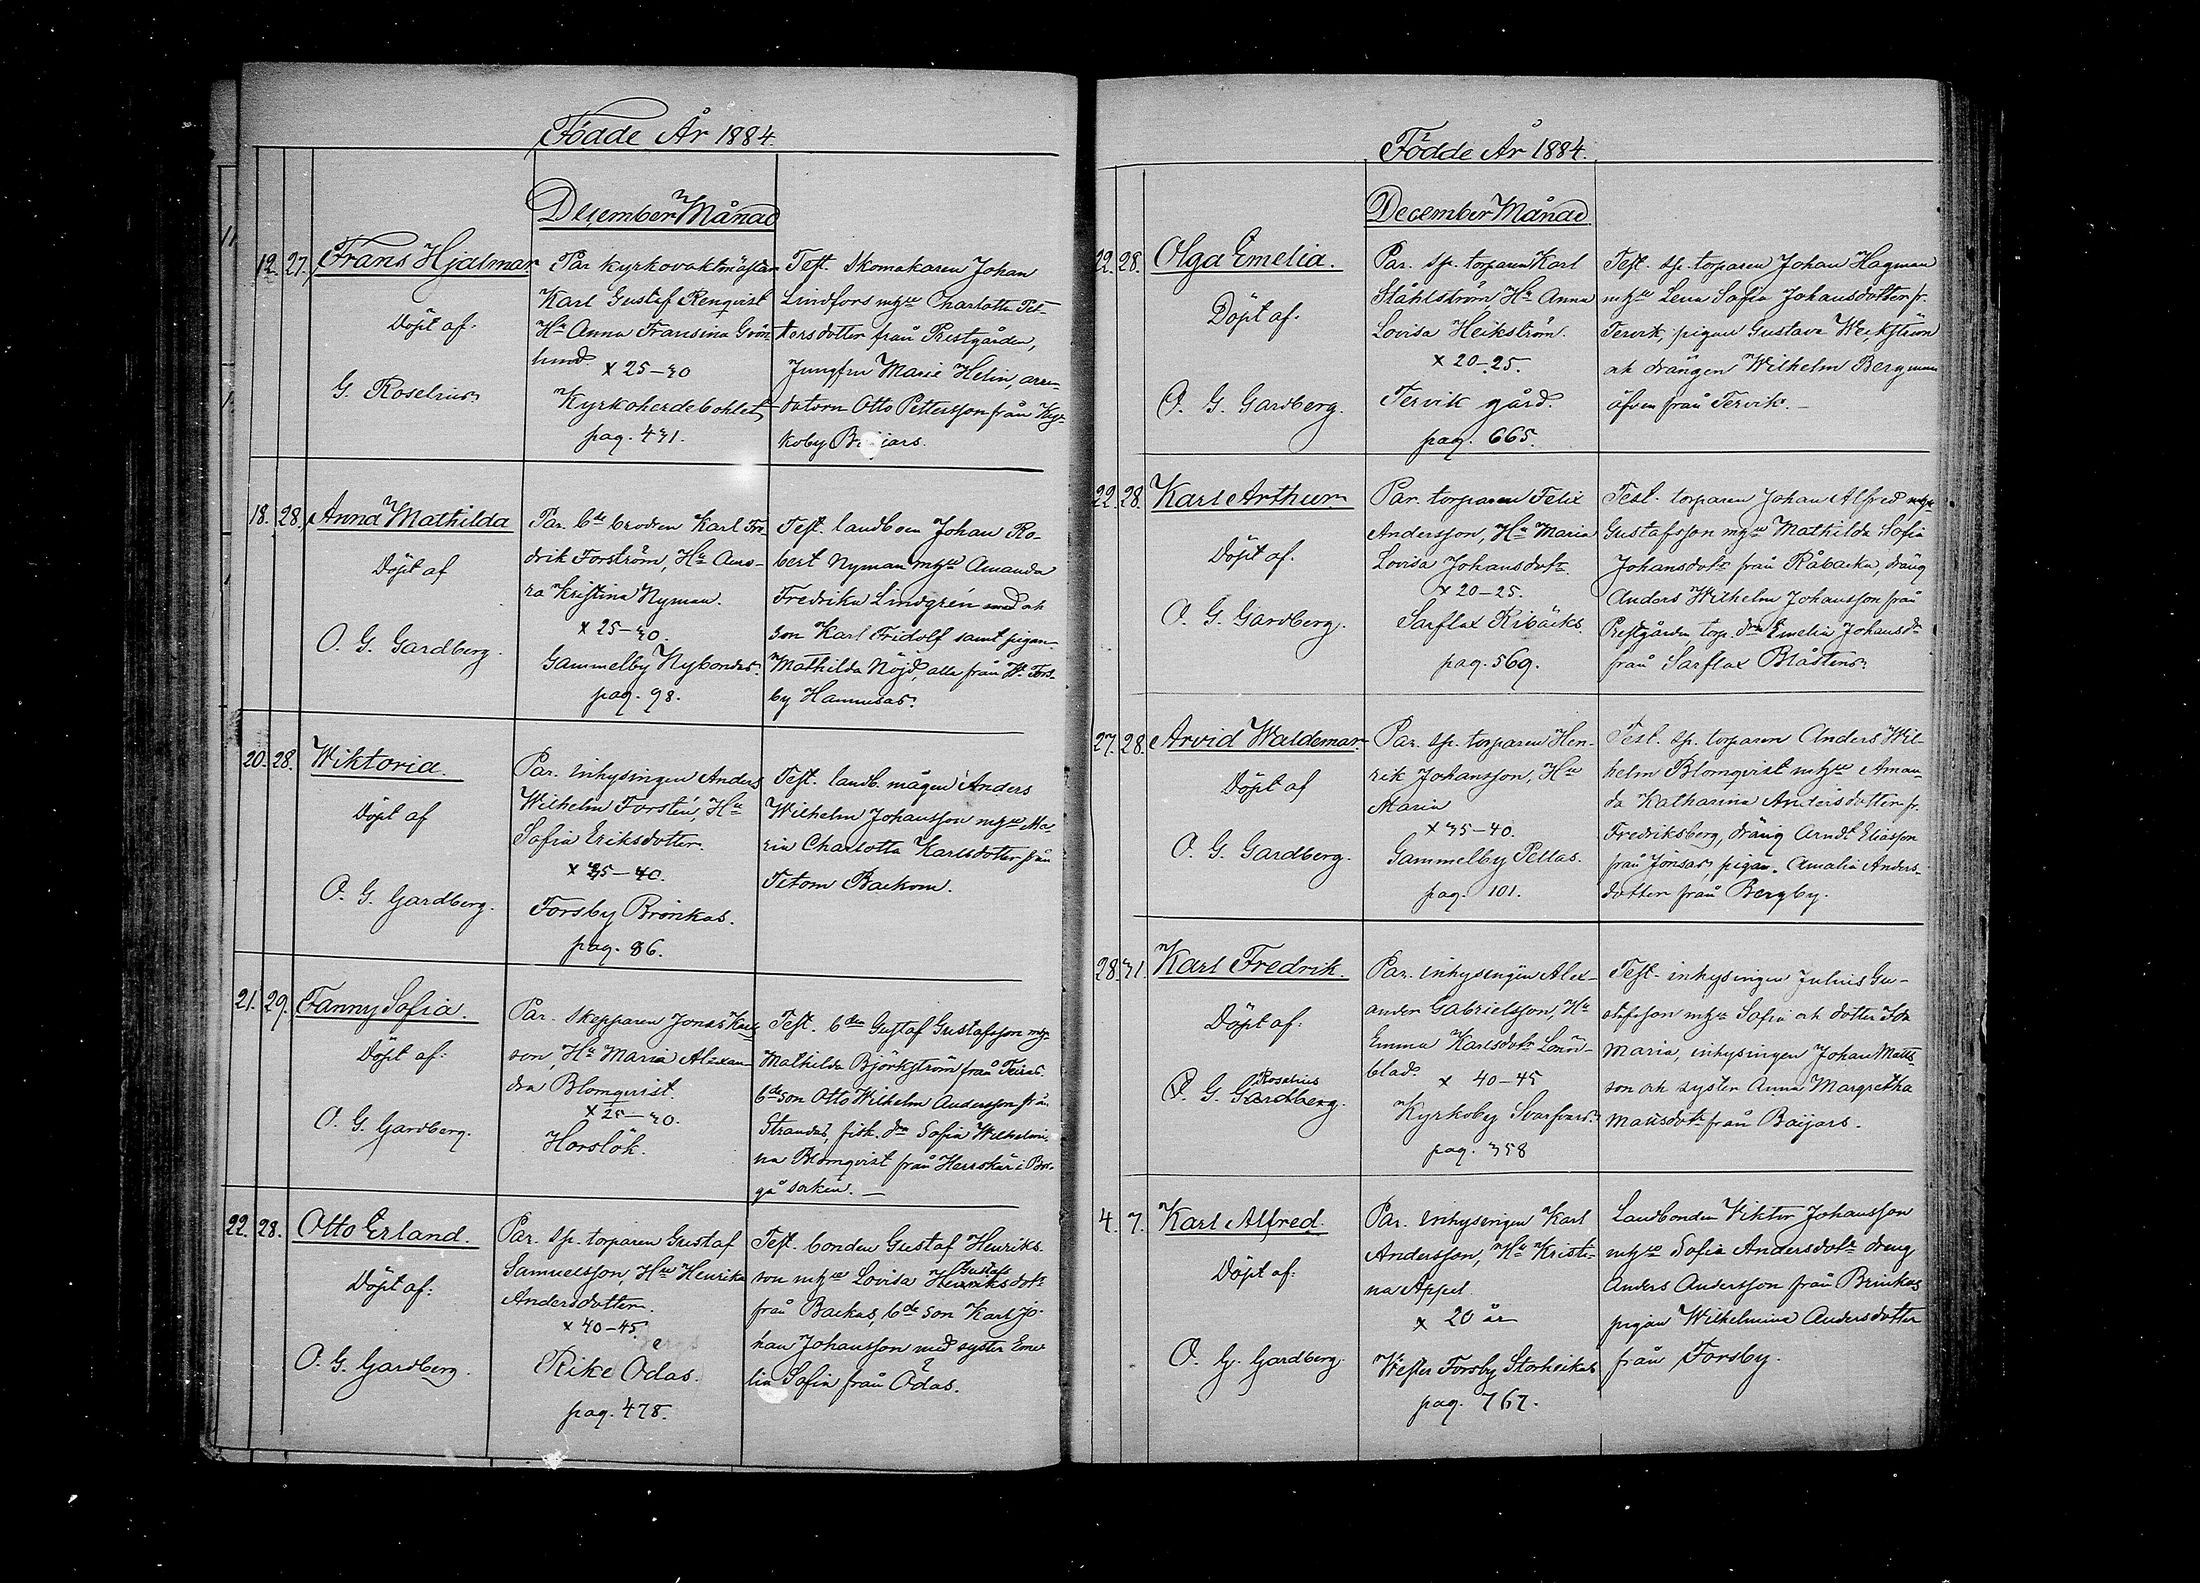 Födde År 1884.
December Månad
12. 27. Frans Hjalmar
Döpt af.
G. Roselius
Par kyrkovaktmästaren
Karl Gustaf Renqvist
Hu Anna Fransina Grön-
lund
x 25-30
Kyrkoherdebohlet
pag. 431.
Test. Skomakaren Johan
Lindfors m hu Charlotta Pet-
tersdotter från Prestgården,
Jungfru Marie Helin, arren-
datorn Otto Pettersson från Kyr-
koby Baijars.
18. 28. Anna Mathilda
Döpt af
O. G. Gardberg.
Par. bde brodren Karl Fre-
drik Forström, Hu Auro-
ra Kristina Nyman.
x 25-30.
Gammelby Nybondas.
pag. 98.
Test. landboen Johan Ro-
bert Nyman m hu Amanda
Fredrika Lindgrén med och
son Karl Fridolf samt pigan
Mathilda Nöjd, alla från W. Fors-
by Hannusas.
20. 28. Wiktoria.
Döpt af
O. G. Gardberg.
Par. inhysingen Anders
Wilhelm Forstén, Hu
Sofia Eriksdotter.
x 35-40.
Forsby Brinkas.
pag. 86.
Test. landb. mågen Anders
Wilhelm Johansson m hu Ma-
ria Charlotta Karlsdotter från
Tetom Backom.
21. 29. Fanny Sofia.
Döpt af:
O. G. Gardberg.
Par. skepparen Jonas Karls
son, Hu Maria Alexan-
dra Blomqvist.
x 25-30.
Horslök.
Test. bde Gustaf Gustafsson m hu
Mathilda Björkström från Teiras.
bdeson Otto Wilhelm Andersson från
Strandas, fisk. dn Sofia Wilhelmi-
na Blomqvist från Herrskär i Bor-
gå socken. —
22. 28. Otto Erland.
Döpt af:
O. G. Gardberg.
Par. sp. torparen Gustaf
Samuelsson, Hu Henrika
Andersdotter.
x 40-45.
Rike Odas.
pag. 478.
Test. bonden Gustaf Henriks-
Gustafs
son m hu Lovisa Henriksdotr
från Backas, bde son Karl Jo-
han Johansson med syster Eme-
lia Sofia från Odas.
Födde År 1884.
December Månad
22. 28. Olga Emelia.
Döpt af.
O. G. Gardberg.
Par. sp. torparen Karl
Ståhlström, Hu Anna
Lovisa Heikström.
x 20-25.
Tervik gård.
pag. 665.
Test. sp. torparen Johan Hagman
m hu Lena Sofia Johansdotter fr.
Tervik, pigan Gustava Weckström
och drängen Wilhelm Bergman
äfven från Tervik. —
22. 28. Karl Arthur
Döpt af.
O. G. Gardberg.
Par. torparen Felix
Andersson, Hu Maria
Lovisa Johansdotr
x 20-25.
Sarflax Ribäcks.
pag. 569.
Test. torparen Johan Alfred
Gustafsson m hu Mathilda Sofia
Johansdotr från Råbacka, dräng
Anders Wilhelm Johansson från
Prestgården, torp. dn Emelia Johansdr
från Sarflax Blåstens.
27. 28. Arvid Waldemar
Döpt af
O. G. Gardberg.
Par. sp. torparen Hen-
rik Johansson, Hu
Maria
x 35-40.
Gammelby Pellas.
pag. 101.
Test. sp. torparen Anders Wil-
helm Blomqvist m hu Aman-
da Katharina Andersdotter fr.
Fredriksberg, dräng Arndt Eliasson
från Jonsas, pigan Amalia Anders-
dotter från Bergby.
28. 31. Karl Fredrik.
Döpt af:
Roselius
O. G. Gardberg.
Par. inhysingen Alex-
ander Gabrielsson, Hu
Emma Karlsdotr Lönn-
blad.
x 40-45
Kyrkoby Svarfvars
pag. 358
Test. inhysingen Julius Gu-
stafsson m hu Sofia och dotter Ida
Maria, inhysingen Johan Matts
son och syster Anna Margretha
Mattsdotr från Baijars.
4. 7. Karl Alfred.
Döpt af:
O. G. Gardberg.
Par. inhysingen Karl
Andersson, Hu Kristi-
na Appel.
x 20 år
Wester Forsby Storheikas
pag. 767.
Landbonden Viktor Johansson
m hu Sofia Andersdotr dreng
Anders Andersson från Brinkas
pigan Wilhelmina Andersdotter
från Forsby.